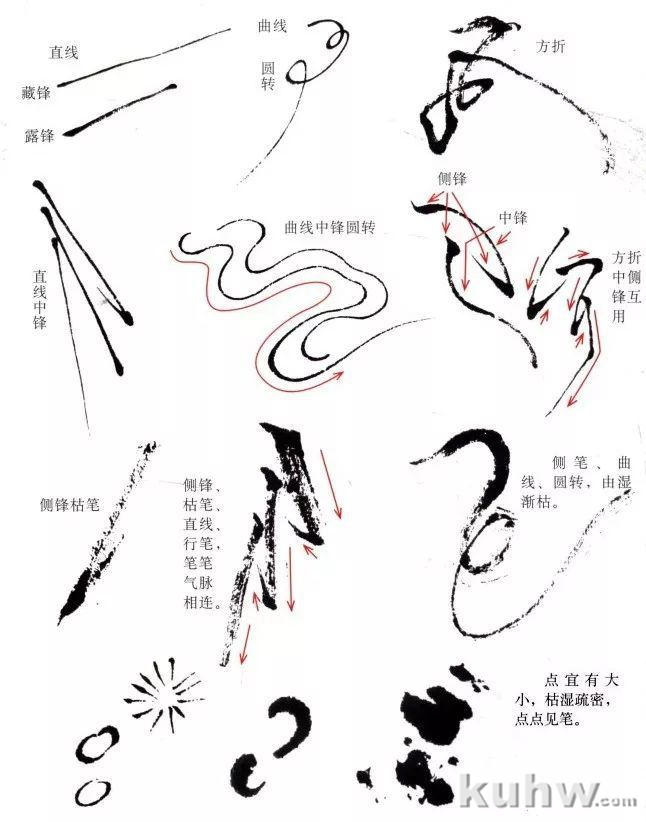 直线
藏锋
露锋
曲线
圆转
方折
直线中锋
曲线中锋圆转
侧锋
中锋
方折
中侧
锋互
用
侧锋枯笔
侧锋、
枯笔、
直线、
行笔，
笔笔
气脉
相连。
侧笔、曲
线、圆转，由湿
渐枯。
点宜有大
小，枯湿疏密，
点点见笔。
kuhw.com